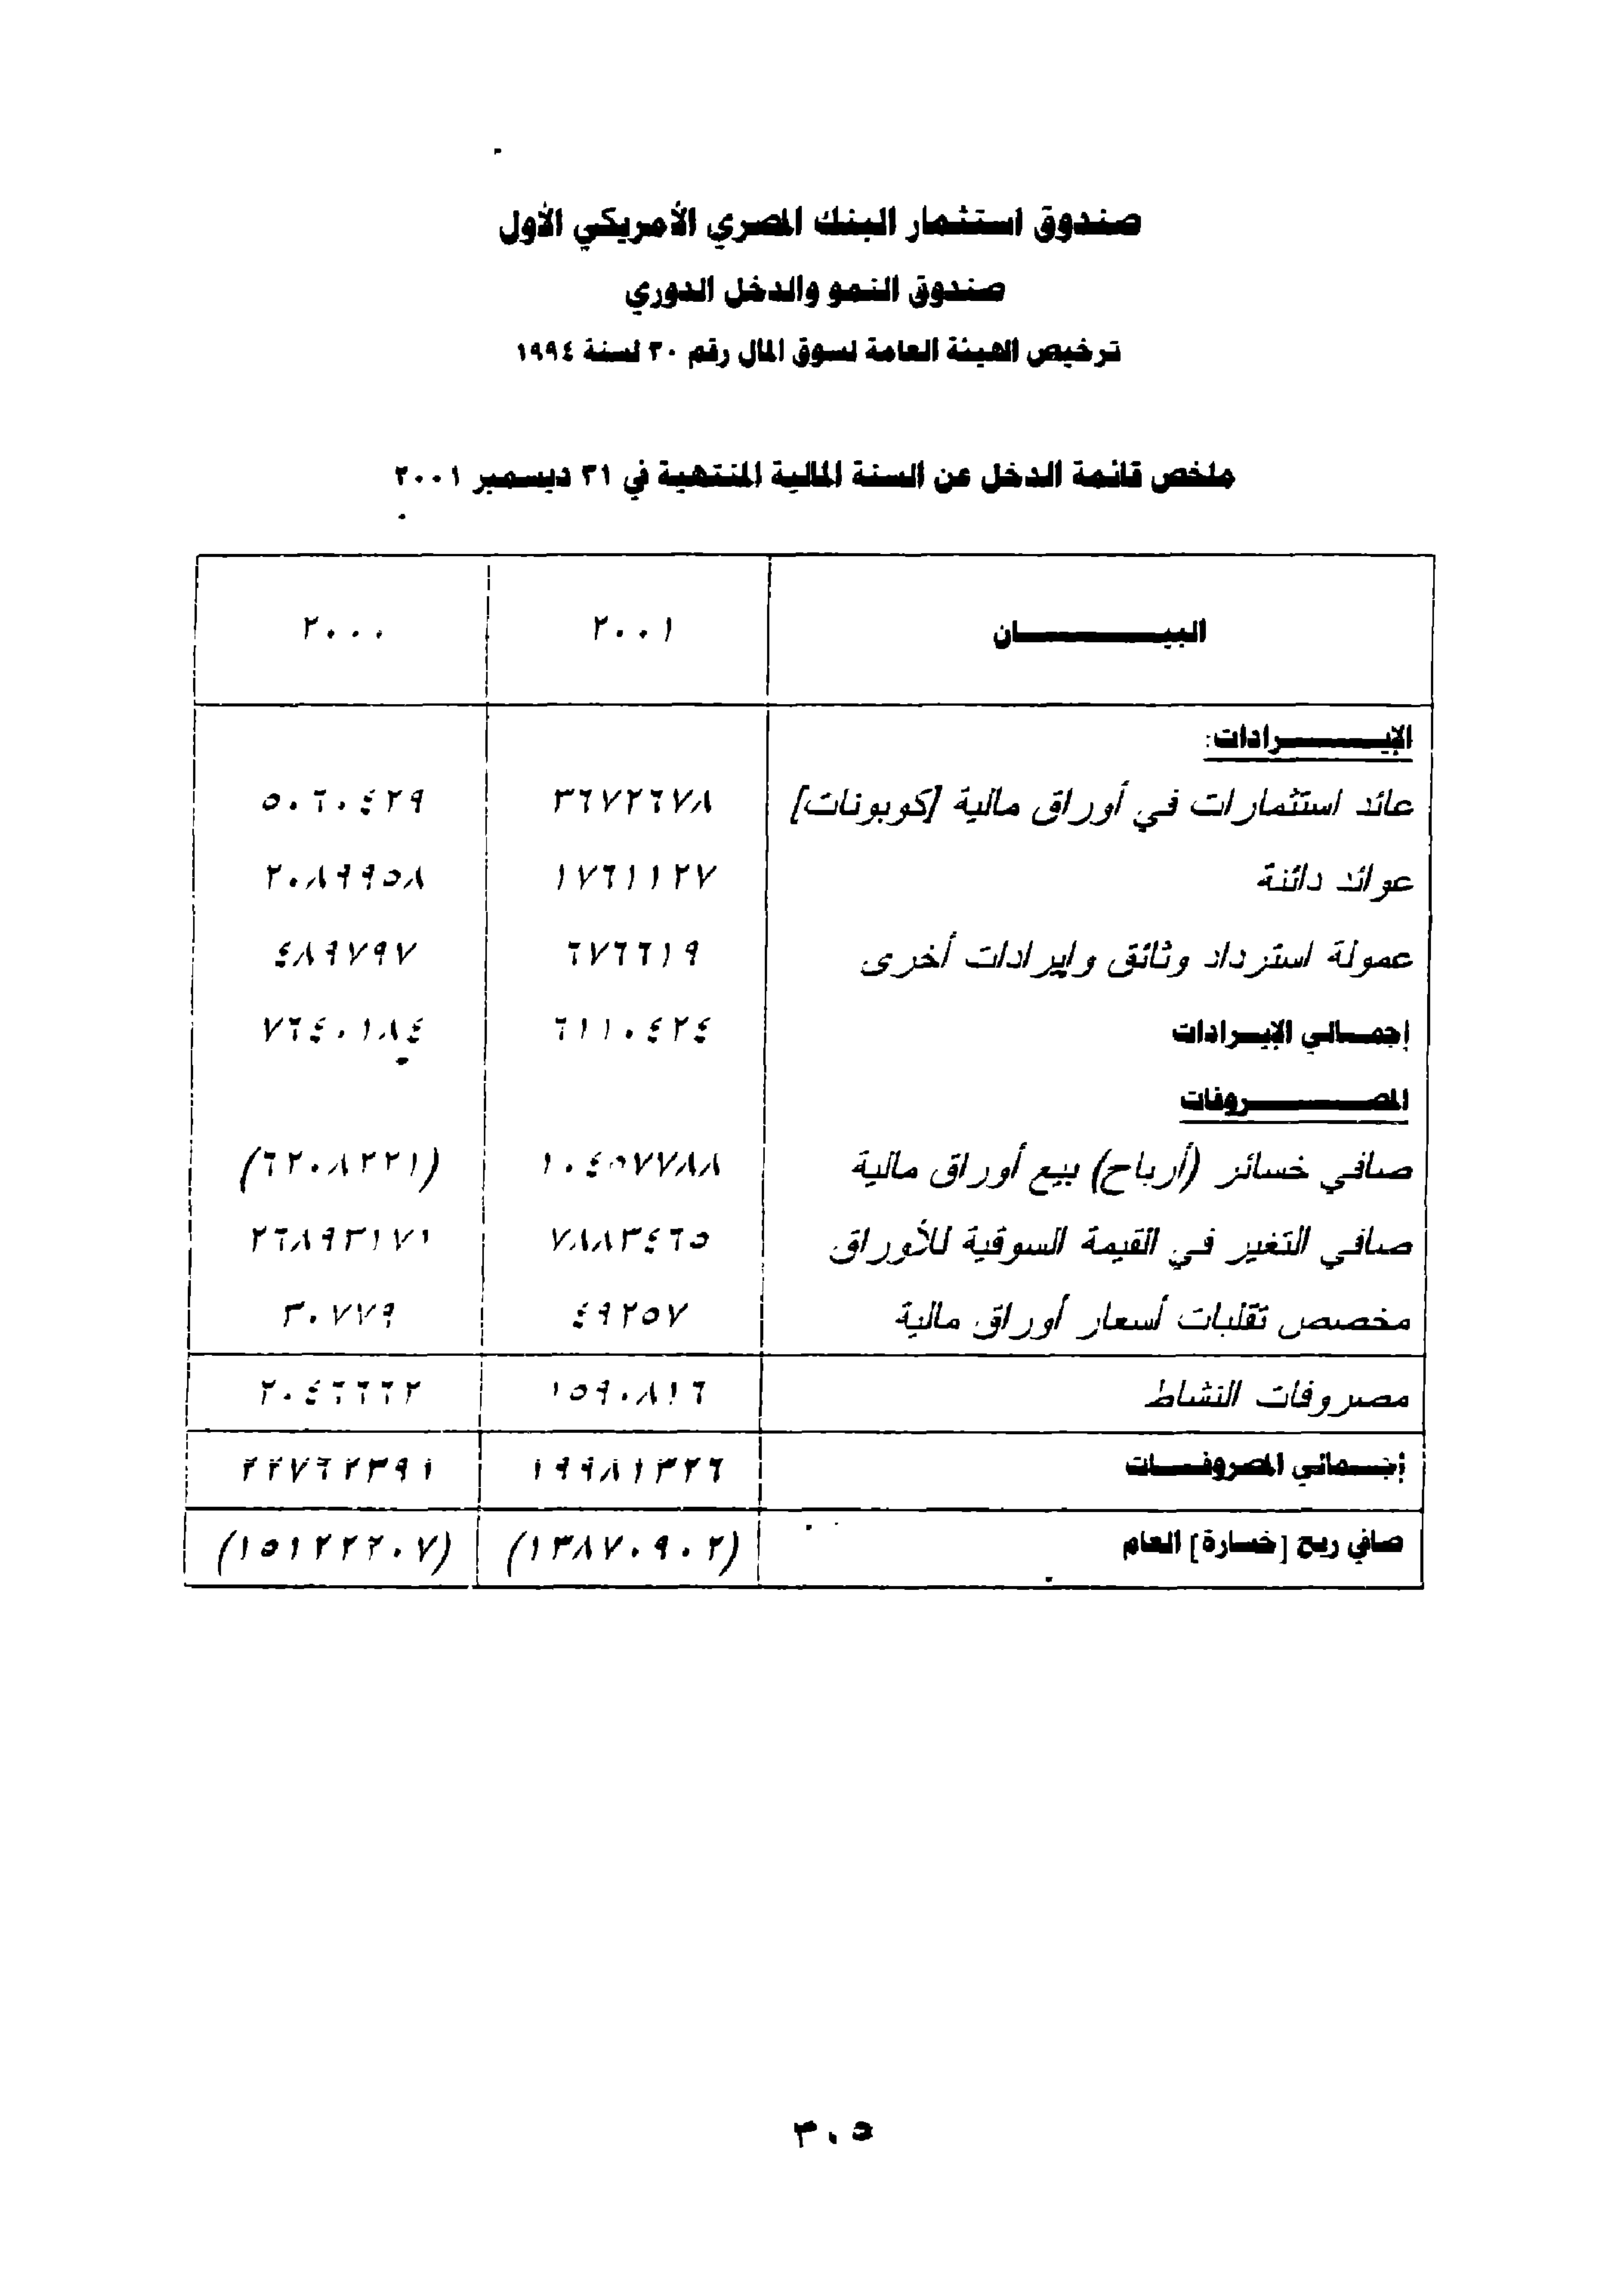 صندوق استثمار البنك المصري الأمريكي الأول
صندوق النمو والدخل الدوري
ترخيص الهيئة العامة لسوق المال رقم ٣٠ لسنة ١٩٩٤
ملخص قائمة الدخل عن السنة المالية المنتهية في ٣١ ديسمبر ٢٠٠١
البيــــــــان ٢٠٠١ ٢٠٠٠
الإيــــــــرادات:
عائد استثمارات في أوراق مالية [كوبونات] ٣٦٧٢٦٧٨ ٥٠٦٠٤٢٩
عوائد دائنة ١٧٦١١٢٧ ٢٠٨٩٩٥٨
عمولة استرداد وثائق وإيرادات أخرى ٦٧٦٦١٩ ٤٨٩٧٩٧
إجمــالي الإيــرادات ٦١١٠٤٢٤ ٧٦٤٠١٨٤
المصــــــــروفات
صافي خسائر (أرباح) بيع أوراق مالية ١٠٤٥٧٧٨٨ (٦٢٠٨٢٢١)
صافي التغير في القيمة السوقية للأوراق ٧٨٨٣٤٦٥ ٢٦٨٩٣١٧١
مخصص تقلبات أسعار أوراق مالية ٤٩٢٥٧ ٣٠٧٧٩
مصروفات النشاط ١٥٩٠٨١٦ ٢٠٤٦٦٦٢
إجــمالي المصروفــات ١٩٩٨١٣٢٦ ٢٢٧٦٢٣٩١
صافي ربح [خسارة] العام (١٣٨٧٠٩٠٢) (١٥١٢٢٢٠٧)
٣٠٥